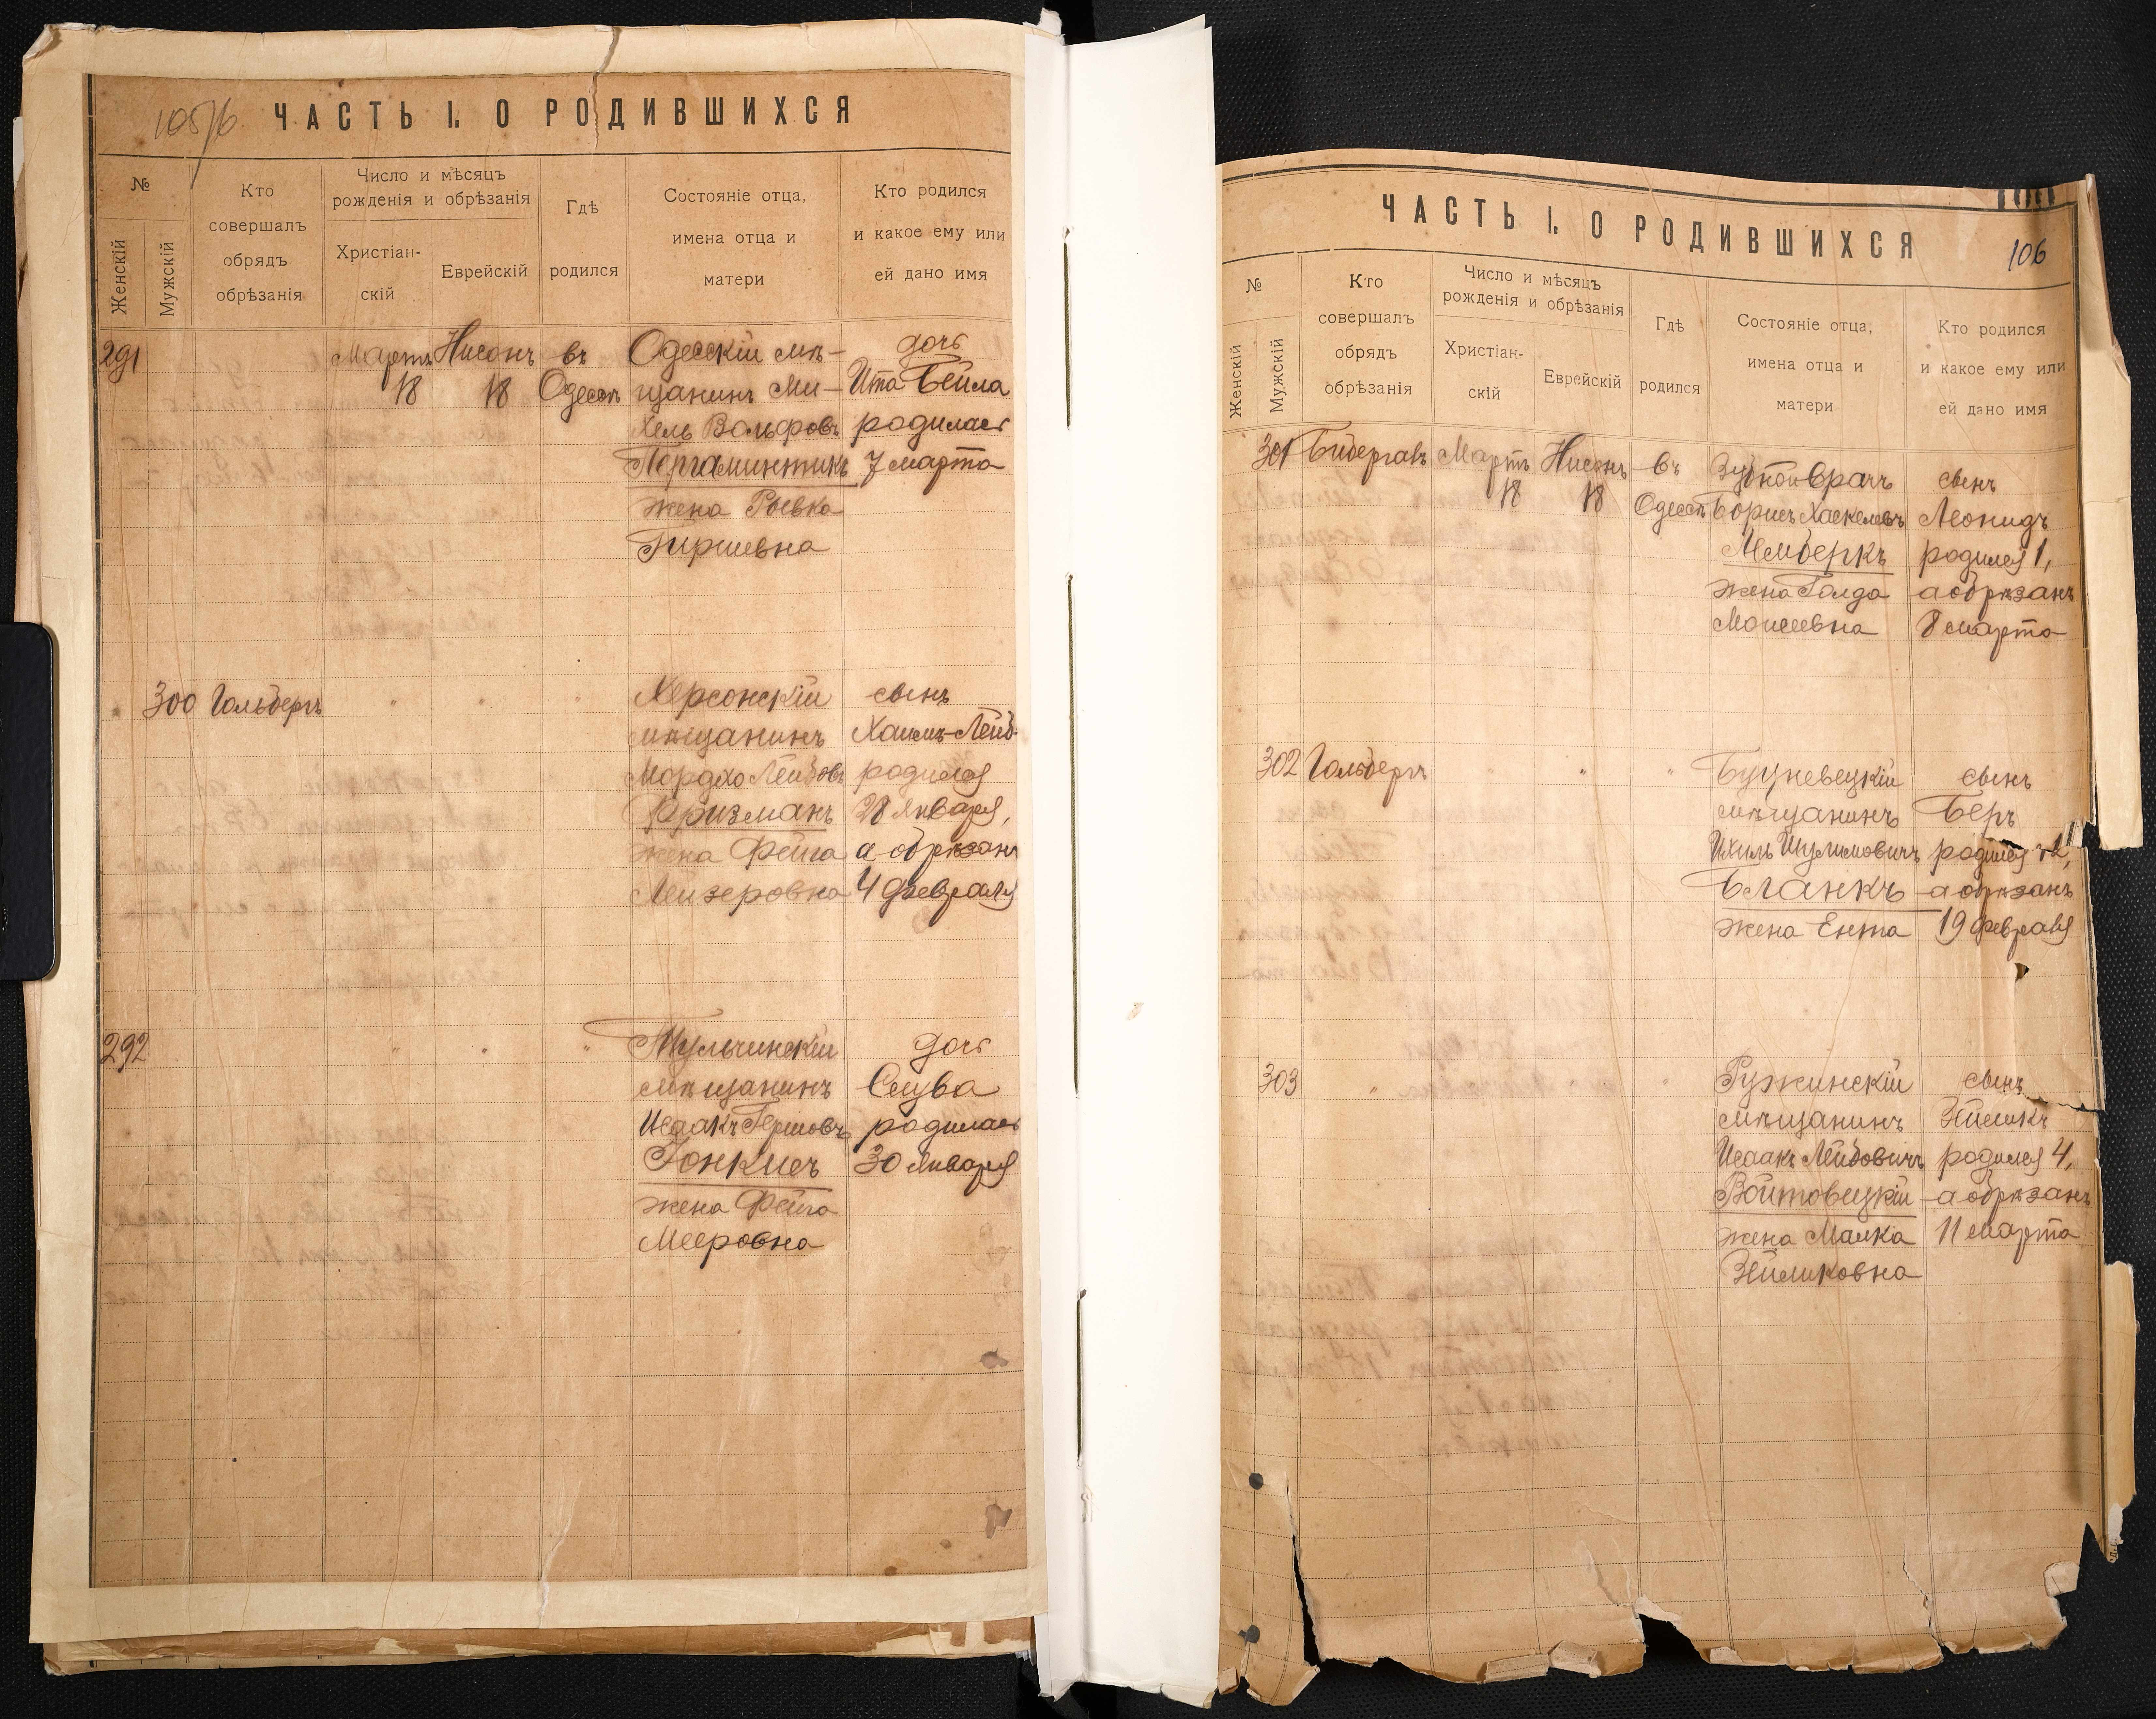 ЧАСТЬ I. О РОДИВШИХСЯ
№
Женскій
Мужскій
Кто совершалъ обрядъ обрѣзанія
Число и мѣсяцъ рожденія и обрѣзанія
Христіан-
скій
Еврейскій
Гдѣ родился
Состояніе отца, имена отца и матери
Кто родился и какое ему или ей дано имя
291 Мартъ Нисонъ въ Одесскій мѣ- дочь
18 18 Одессѣ щанинъ Ми- Ита-Бейла
хель Вольфовъ родилась
Пергаминтикъ 7 марта
жена Рывка
Гиршевна
300 Гольдбергъ " " " Херсонскій сынъ
мѣщанинъ Хаимъ-Лейб
Мордхо Лейбовъ родился
Фризманъ 28 января,
жена Фейга а обрѣзанъ
Лейзеровна 4 февраля
292 " " " Тульчинскій дочь
мѣщанинъ
Исаакъ Гершовъ родилась
30 января
жена Фейга
Мееровна
ЧАСТЬ I. О РОДИВШИХСЯ
106
№
Женскій
Мужскій
Кто совершалъ обрядъ обрѣзанія
Число и мѣсяцъ рожденія и обрѣзанія
Христіан-
скій
Еврейскій
Гдѣ родился
Состояніе отца, имена отца и матери
Кто родился и какое ему или ей дано имя
301 Мартъ Нисонъ въ Зубной врачъ сынъ
18 18 Одессѣ Борисъ Хаскелевъ Леонидъ
Мемберкъ родился 1,
жена Голда а обрѣзанъ
Моисеевна 8 марта
302 Гольдбергъ " " " сынъ
мѣщанинъ Беръ
Ихиль Шулимовичъ родился 12,
Бланкъ а обрѣзанъ
жена Ента 19 февраля
303 " " Ружинскій сынъ
мѣщанинъ Зейликъ
Исаакъ Лейбовичъ родился 4,
Войтовецкій а обрѣзанъ
жена Малка 11 марта
Зейликовна